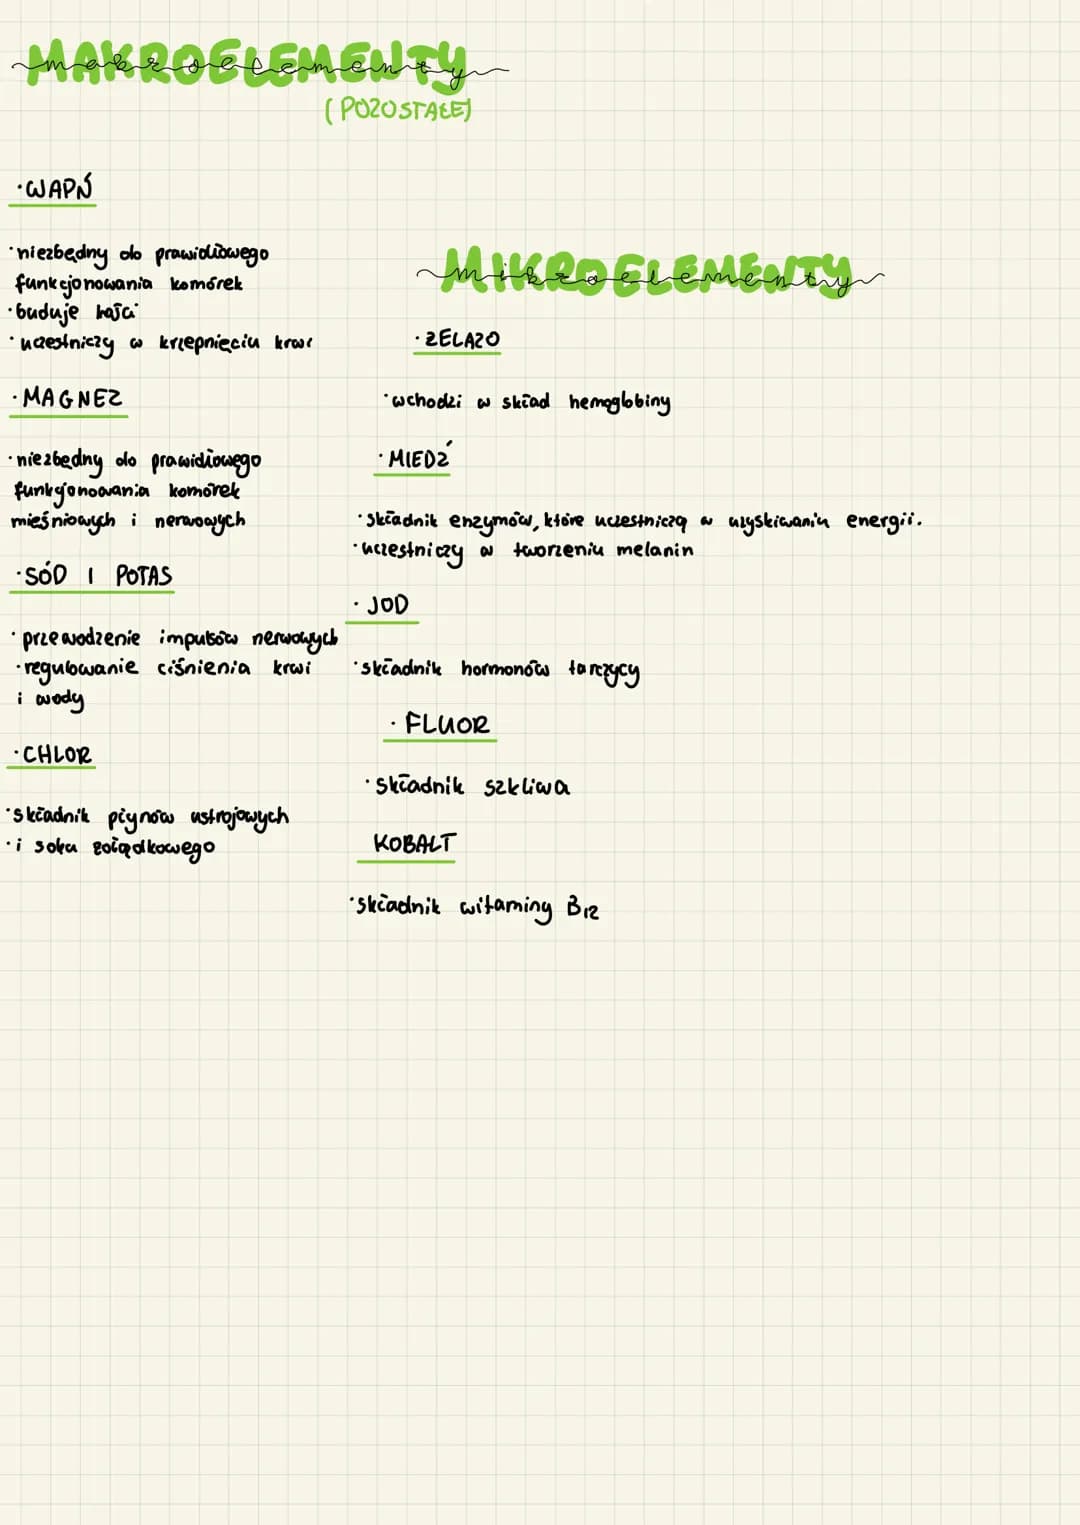 MAKROELEMENTY
makroelementy
(POZOSTAŁE)
·WAPŃ
·niezbędny do prawidłowego
funkcjonowania komórek
·buduje kości
·uczestniczy w krzepnięciu krwi
·MAGNEZ
·niezbędny do prawidłowego
funkcjonowania komórek
mięśniowych i nerwowych
·SÓD I POTAS
·przewodzenie impulsów nerwowych
·regulowanie ciśnienia krwi
i wody
·CHLOR
·składnik płynów ustrojowych
·i soku żołądkowego
MIKROELEMENTY
mikroelementy
·ŻELAZO
·wchodzi w skład hemoglobiny
·MIEDŹ
·składnik enzymów, które uczestniczą w uzyskiwaniu energii.
·uczestniczy w tworzeniu melanin
·JOD
·składnik hormonów tarczycy
·FLUOR
·składnik szkliwa
KOBALT
·składnik witaminy B12